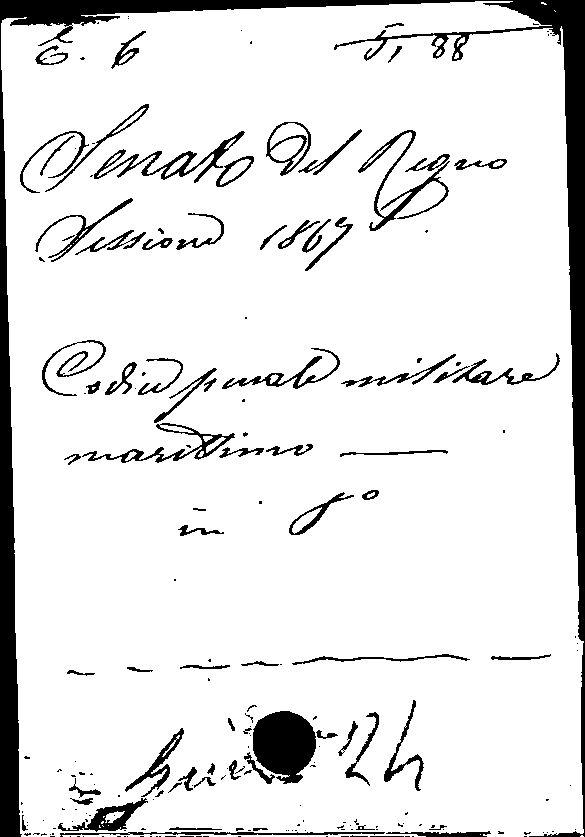 E. 6 5, 88
Senato Del Regno
Sessione 1867
Codice penale militare
marittimo —
in 8°
24